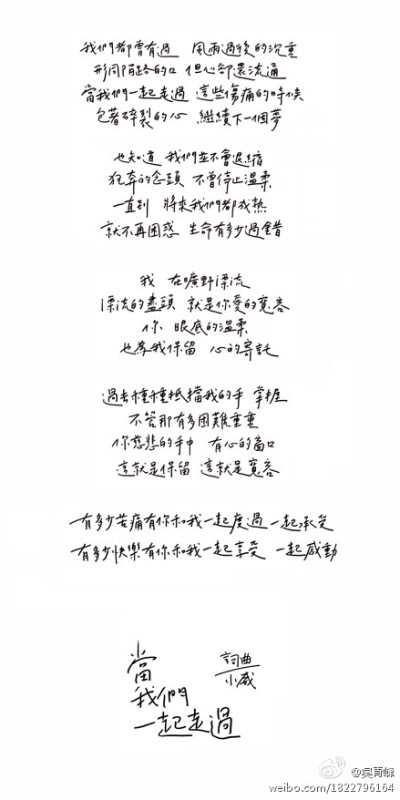 我們都曾有過 風雨過後的沉重
形同陌路的口 但心卻還流通
當我們一起走過 這些傷痛的時候
包著碎裂的心 繼續下一個夢
也知道 我們並不會退縮
狂奔的念頭 不曾停止溫柔
一直到 將來我們都成熟
就不再困惑 生命有多少過錯
我 在曠野漂流
漂流的盡頭 就是你愛的寬容
你 眼底的溫柔
也為我保留 心的寄託
過去種種抵擋我的手 掌握
不管那有多困難重重
你慈悲的手中 有心的窗口
這就是保留 這就是寬容
有多少苦痛有你和我一起度過 一起承受
有多少快樂有你和我一起享受 一起感動
當
我們
一起走過
詞曲
小威
@吳青峰
weibo.com/1822796164